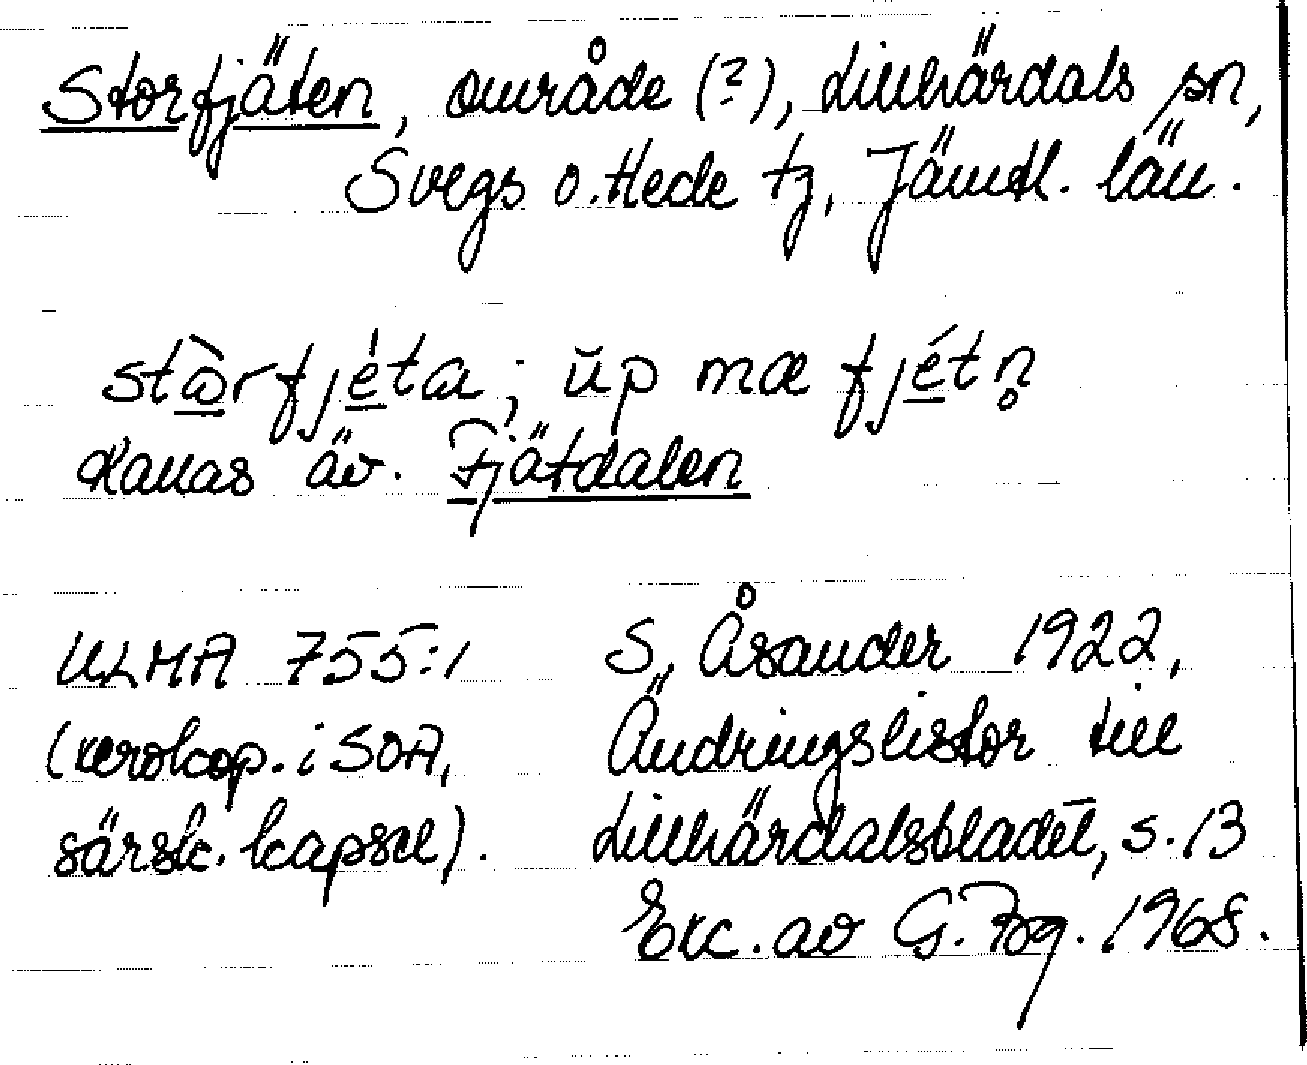 Storfjäten, område (?), Lillhärdals sn,
Svegs o. Hede tg, Jämtl. län.
stɷ̀rfjéta; ŭp mæ fjétn̥
Kallas äv. Fjätdalen
ULMA 755:1 S. Åsander 1922,
(xerokop. i SOA, Ändringslistor till
särsk. kapsel). Lillhärdalsbladet, s. 13
Exc. av G. 1968.